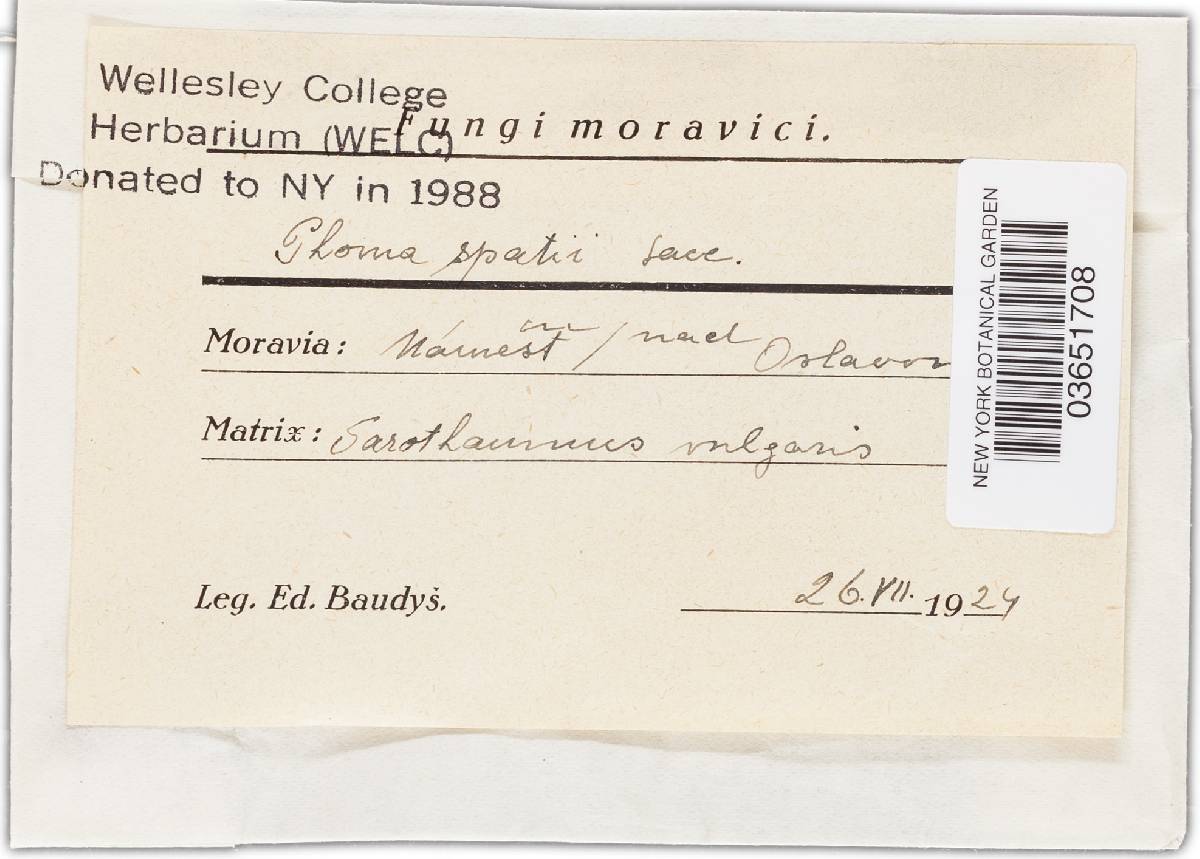 Wellesley College
Herbarium (WELC)
Donated to NY in 1988
Fungi moravici.
Phoma spatii Sacc.
Moravia: Náměšť / nad Oslavou
Matrix: Sarothamnus vulgaris
Leg. Ed. Baudyš.
26.VII. 1924
NEW YORK BOTANICAL GARDEN
03651708